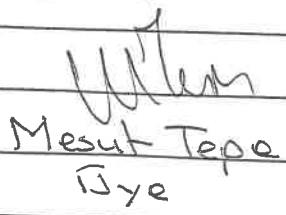 Mesut Tepe
Üye